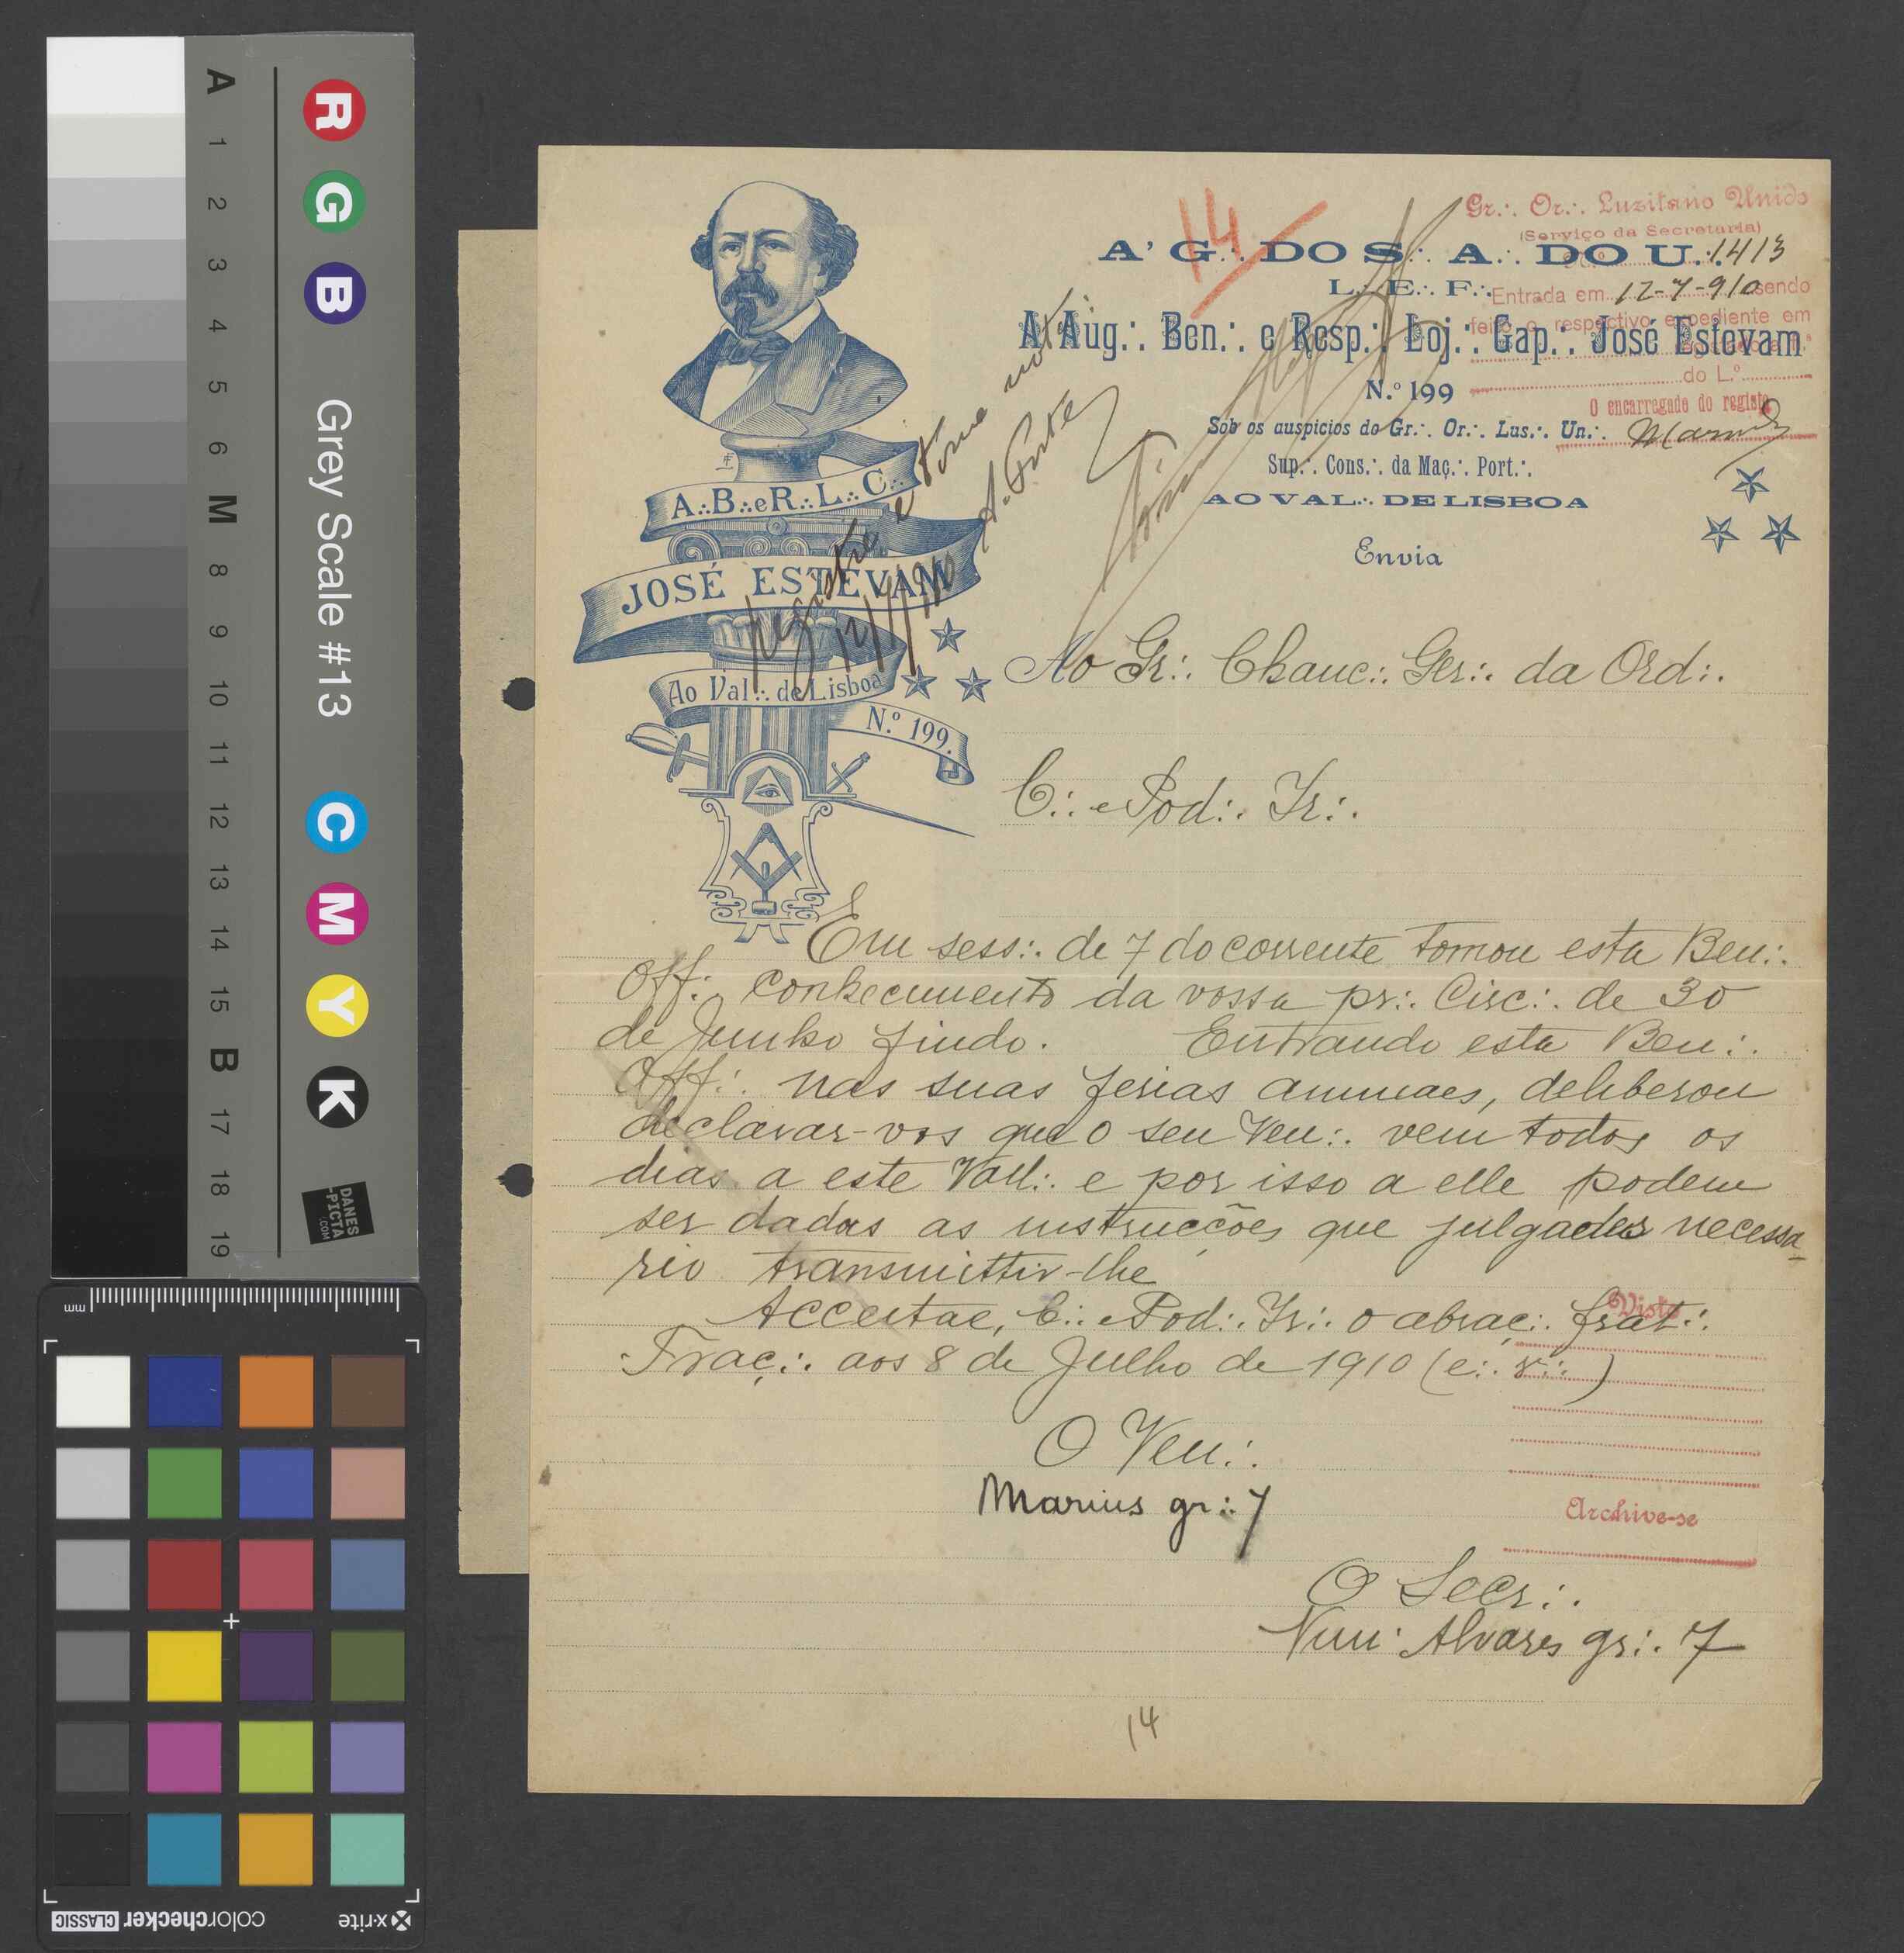 A' G.·. DO S.·. A.·. DO U.·.
L.·. E.·. F.·.
A Aug.·. Ben.·. e Resp.·. Loj.·. Cap.·. José Estevam
N.º 199
Sob os auspicios do Gr.·. Or.·. Lus.·. Un.·.
Sup.·. Cons.·. da Maç.·. Port.·.
AO VAL.·. DE LISBOA
Envia
14
Gr.·. Or.·. Luzitano Unido
(Serviço da Secretaria)
1413
Entrada em 12-7-910 sendo
feito o respectivo expediente em
do L.º
O encarregado do registo
A.·.B.·.e R.·.L.·.C.·.
JOSÉ ESTEVAM
Ao Val.·. de Lisboa
N.º 199.
Registre e tome nota
12/7/910
Ao Gr.·. Chanc.·. Ger.·. da Ord.·.
C.·. e Pod.·. Ir.·.
Em sess.·. de 7 do corrente tomou esta Ben.·.
Off.·. conhecimento da vossa pr.·. Circ.·. de 30
de Junho findo. Entrando esta Ben.·.
Off.·. nas suas ferias annuaes, deliberou
declarar-vos que o seu Ven.·. vem todos os
dias a este Vall.·. e por isso a elle podem
ser dadas as instrucções que julgardes necessa-
rio transmittir-lhe
Acceitae, C.·. e Pod.·. Ir.·. o abraç.·. frat.·.
Visto
Traç.·. aos 8 de Julho de 1910 (e.·. v.·.)
O Ven.·.
Marius gr.·. 7
Archive-se
O Secr.·.
Nun' Alvares gr.·. 7
14
A 1 2 3 4 5 6 M 8 9 10 11 12 13 14 15 B 17 18 19
R G B Grey Scale #13 C M Y K
DANES
-PICTA
.COM
mm
x-rite colorchecker CLASSIC